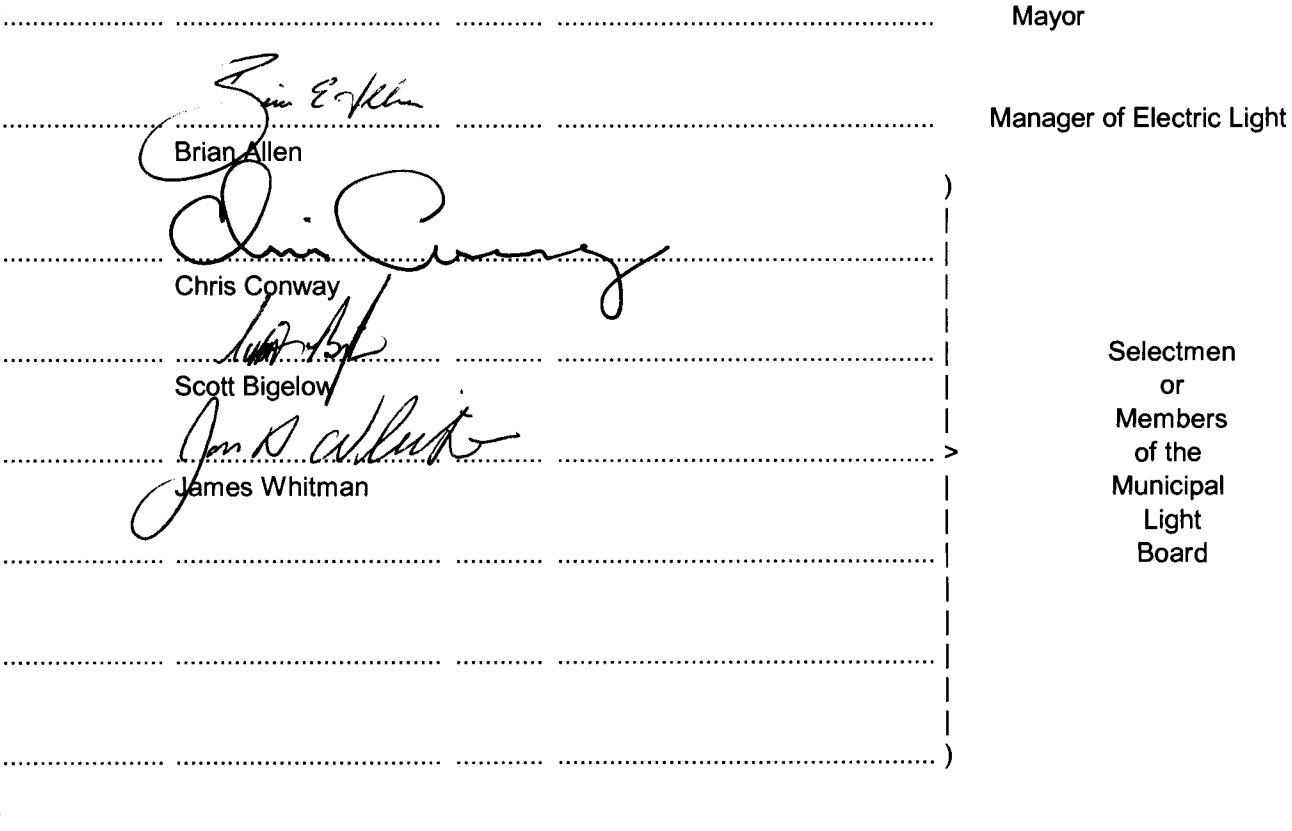 Mayor
Brian E Allen
Manager of Electric Light
Brian Allen
Chris Conway
Chris Conway
Scott Bigelow
James Whitman
Selectmen
or
Members
of the
Municipal
Light
Board